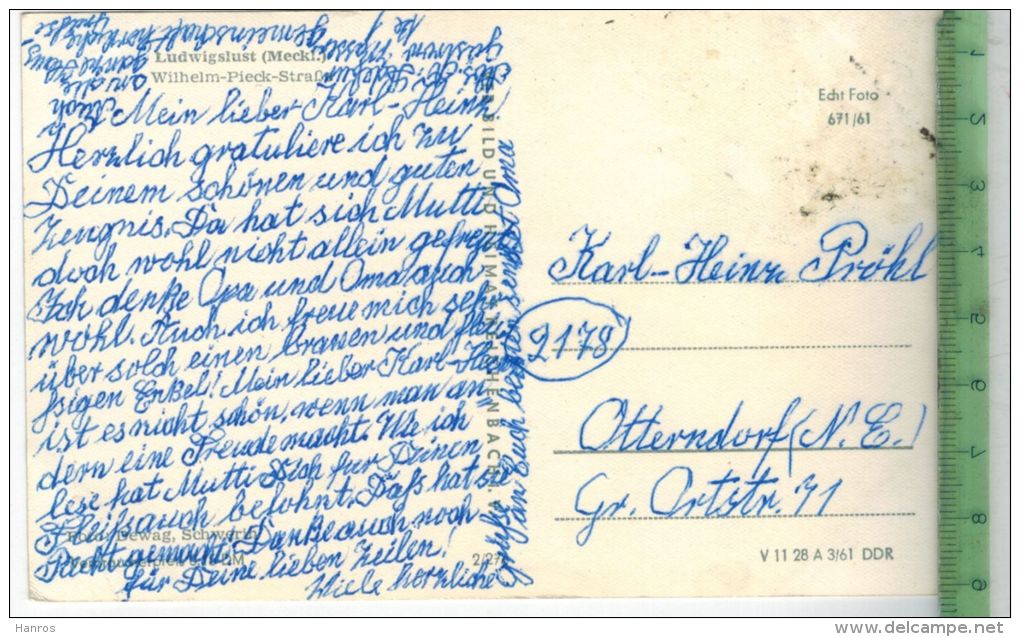 Ludwigslust (Meckl.)
Wilhelm-Pieck-Straße
Mein lieber Karl-Heinz!
Herzlich gratuliere ich zu
Deinem schönen und guten
Zeugnis. Da hat sich Mutti
doch wohl nicht allein gefreut
Ich denke Opa und Oma auch
wohl. Auch ich freue mich sehr
über solch einen braven und fleis
sigen Enkel! Mein lieber Karl-Heinz
ist es nicht schön, wenn man an-
dern eine Freude macht. Wie ich
lese hat Mutti Dich für Deinen
Fleiß auch belohnt. Daß hat sie
Recht gemacht. Danke auch noch
für Deine lieben Zeilen!
Viele herzliche
Grüße an Euch beide sendet Oma
Foto: Dewag, Schwerin
2/27
Echt Foto
671/61
Karl-Heinz Pröhl
2178
Otterndorf (N.E.)
Gr. Ortstr. 71
V 11 28 A 3/61 DDR
Hanros
delcampe.net